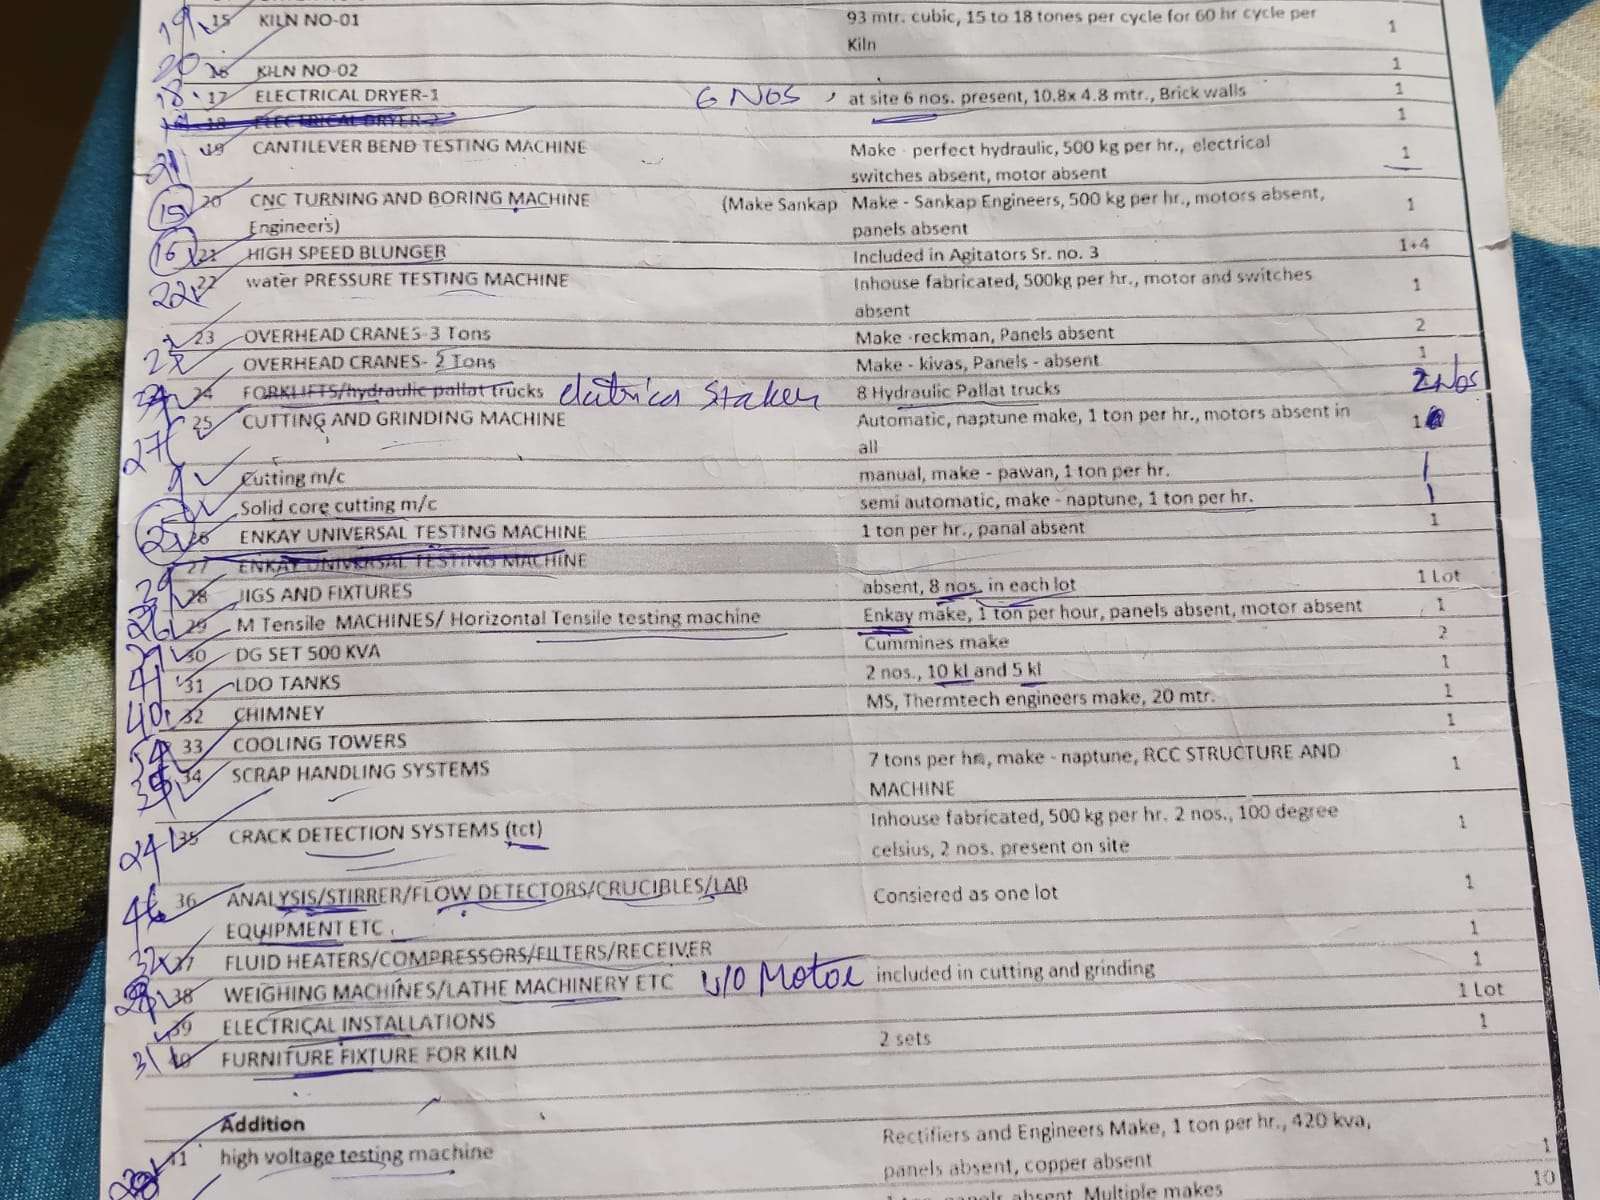 19 15 KILN NO-01 93 mtr. cubic, 15 to 18 tones per cycle for 60 hr cycle per 1
Kiln
20 16 KILN NO-02 1
18 17 ELECTRICAL DRYER-1 6 NOS , at site 6 nos. present, 10.8x 4.8 mtr., Brick walls 1
18 ELECTRICAL DRYER-2 1
21 19 CANTILEVER BEND TESTING MACHINE Make - perfect hydraulic, 500 kg per hr., electrical 1
switches absent, motor absent
15 20 CNC TURNING AND BORING MACHINE (Make Sankap Make - Sankap Engineers, 500 kg per hr., motors absent, 1
Engineers) panels absent
16 21 HIGH SPEED BLUNGER Included in Agitators Sr. no. 3 1+4
22 22 water PRESSURE TESTING MACHINE Inhouse fabricated, 500kg per hr., motor and switches 1
absent
23 OVERHEAD CRANES-3 Tons Make -reckman, Panels absent 2
OVERHEAD CRANES- 2 Tons Make - kivas, Panels - absent 1
24 FORKLIFTS/hydraulic pallat trucks 8 Hydraulic Pallat trucks 2 Nos
27 25 CUTTING AND GRINDING MACHINE Automatic, naptune make, 1 ton per hr., motors absent in 1
all
Cutting m/c manual, make - pawan, 1 ton per hr. 1
Solid core cutting m/c semi automatic, make - naptune, 1 ton per hr. 1
25 26 ENKAY UNIVERSAL TESTING MACHINE 1 ton per hr., panal absent 1
27 ENKAY UNIVERSAL TESTING MACHINE
28 JIGS AND FIXTURES absent, 8 nos. in each lot 1 Lot
26 29 M Tensile MACHINES/ Horizontal Tensile testing machine Enkay make, 1 ton per hour, panels absent, motor absent 1
30 DG SET 500 KVA Cummines make 2
41 31 LDO TANKS 2 nos., 10 kl and 5 kl 1
40 32 CHIMNEY MS, Thermtech engineers make, 20 mtr. 1
33 COOLING TOWERS 1
34 SCRAP HANDLING SYSTEMS 7 tons per hr, make - naptune, RCC STRUCTURE AND 1
MACHINE
24 35 CRACK DETECTION SYSTEMS (tct) Inhouse fabricated, 500 kg per hr. 2 nos., 100 degree 1
celsius, 2 nos. present on site
46 36 ANALYSIS/STIRRER/FLOW DETECTORS/CRUCIBLES/LAB Consiered as one lot 1
EQUIPMENT ETC
32 37 FLUID HEATERS/COMPRESSORS/FILTERS/RECEIVER 1
38 WEIGHING MACHINES/LATHE MACHINERY ETC W/O Motor included in cutting and grinding 1
39 ELECTRICAL INSTALLATIONS 1 Lot
31 40 FURNITURE FIXTURE FOR KILN 2 sets 1
Addition
41 high voltage testing machine Rectifiers and Engineers Make, 1 ton per hr., 420 kva, 1
panels absent, copper absent
panels absent, Multiple makes 10